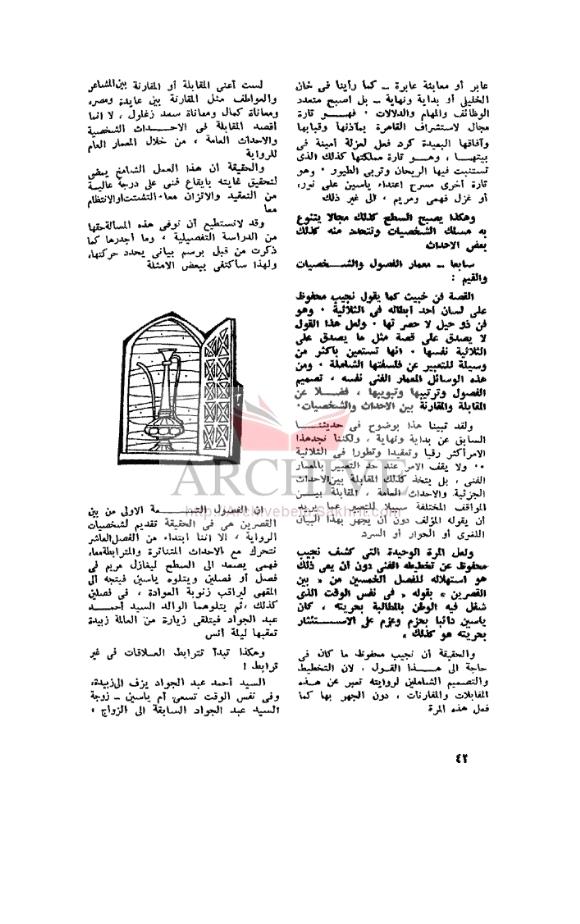 عابر أو معابثة عابرة ــ كما رأينا فى خان
الخليلى أو بداية ونهاية ــ بل اصبح متعدد
الوظائف والمهام والدلالات ٠ فهــو تارة
مجال لاستشراف القاهرة بمآذنها وقبابها
وآفاقها البعيدة كرد فعل لعزلة أمينة فى
بيتهــا ، وهــو تارة مملكتها كذلك الذى
تستنبت فيها الريحان وتربى الطيور ٠ وهو
تارة أخرى مسرح اعتداء ياسين على نور،
أو غزل فهمى ومريم ، الى غير ذلك
وهكذا يصبح السطح كذلك مجالا يتنوع
به مسلك الشخصيات وتتحدد منه كذلك
بعض الاحداث
سابعا ــ معمار الفصول والشــخصيات
والقيم :
القصة فن خبيث كما يقول نجيب محفوظ
على لسان أحد ابطاله فى الثلاثية ٠ وهو
فن ذو حيل لا حصر لها ٠ ولعل هذا القول
لا يصدق على قصة مثل ما يصدق على
الثلاثية نفسها ٠ انها تستعين بأكثر من
وسيلة للتعبير عن فلسفتها الشاملة ٠ ومن
هذه الوسائل المعمار الفنى نفسه ، تصميم
الفصول وترتيبها وتبويبها ، فضــلا عن
المقابلة والمقارنة بين الاحداث والشخصيات٠
ولقد تبينا هذا بوضوح فى حديثنــا
السابق عن بداية ونهاية ، ولكننا نجدهذا
الامر أكثر رقيا وتعقيدا وتطورا فى الثلاثية
٠٠ ولا يقف الامر عند حد التعبير بالمعمار
الفنى ، بل يتخذ كذلك المقابلة بين الاحداث
الجزئية والاحداث العامة ، المقابلة بيــن
المواقف المختلفة سبيلا للتعبير عما يريد
أن يقوله المؤلف دون أن يجهر بهذا البيان
اللغوى أو الحوار أو السرد
ولعل المرة الوحيدة التى كشف نجيب
محفوظ عن تخطيطه الفنى دون أن يعى ذلك
هو استهلاله للفصل الخمسين من « بين
القصرين » بقوله « فى نفس الوقت الذى
شغل فيه الوطن بالمطالبة بحريته ، كان
ياسين دائبا بحزم وعزم على الاســتئثار
بحريته هو كذلك »
والحقيقة أن نجيب محفوظ ما كان فى
حاجة الى هــذا القول ، لان التخطيط
والتصميم الشاملين لروايته تعبر عن هــذه
المقابلات والمقارنات ، دون الجهر بها كما
فعل هذه المرة
لست أعنى المقابلة أو المقارنة بين المشاعر
والعواطف مثل المقارنة بين عايدة ومصر،
ومعاناة كمال ومعاناة سعد زغلول ، لا انما
أقصد المقابلة فى الاحــداث الشخصية
والاحداث العامة ، من خلال المعمار العام
للرواية
والحقيقة ان هذا العمل الشامخ يمضى
لتحقيق غايته بايقاع فنى على درجة عالية
من التعقيد والاتزان معا٠ التشتت والانتظام
معا
وقد لانستطيع أن نوفى هذه المسألة حقها
من الدراسة التفصيلية ، وما أجدرها كما
ذكرت من قبل برسم بيانى يحدد حركتها،
ولهذا سأكتفى ببعض الامثلة
ان الفصول التســعة الاولى من بين
القصرين هى فى الحقيقة تقديم لشخصيات
الرواية ، الا اننا ابتداء من الفصل العاشر
نتحرك مع الاحداث المتناثرة والمترابطة معا،
فهمى يصعد الى السطح ليغازل مريم فى
فصل أو فصلين ويتلوه ياسين فيتجه الى
المقهى ليراقب زنوبة العوادة ، فى فصلين
كذلك ، ثم يتلوهما الوالد السيد أحمــد
عبد الجواد فيتلقى زيارة من العالمة زبيدة
تعقبها ليلة أنس
وهكذا تبدأ تترابط العلاقات فى غير
ترابط !
السيد أحمد عبد الجواد يزف الى زبيدة،
وفى نفس الوقت تسعى أم ياسين ــ زوجة
السيد عبد الجواد السابقة الى الزواج ،
٤٢
ARCHIVE
http://Archivebeta.Sakhrit.com